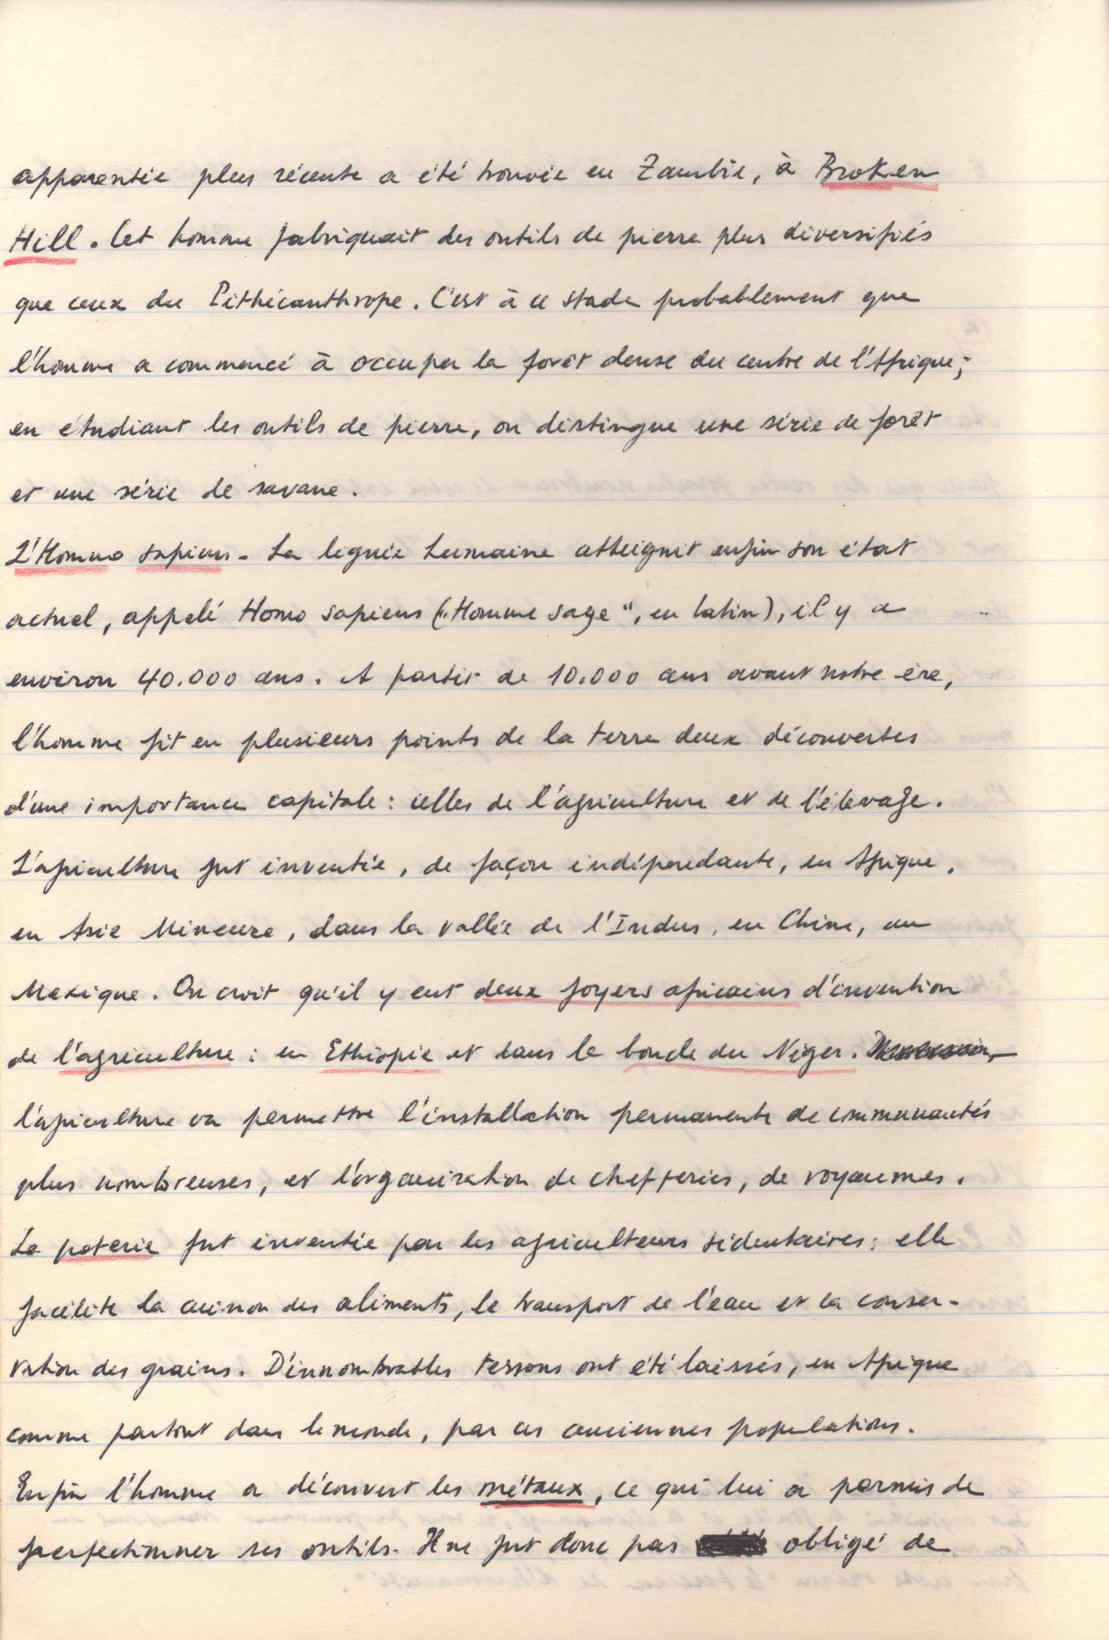 apparentée plus récente a été trouvée en Zambie, à Broken
Hill. Cet homme fabriquait des outils de pierre plus diversifiés
que ceux du Pithécanthrope. C'est à ce stade probablement que
l'homme a commencé à occuper la forêt dense du centre de l'Afrique;
en étudiant les outils de pierre, on distingue une série de forêt
et une série de savane.
L'Homme sapiens - La lignée humaine atteignit enfin son état
actuel, appelé Homo sapiens („Homme sage", en latin), il y a
environ 40.000 ans. A partir de 10.000 ans avant notre ère,
l'homme fit en plusieurs points de la terre deux découvertes
d'une importance capitale: celles de l'agriculture et de l'élevage.
L'agriculture fut inventée, de façon indépendante, en Afrique,
en Asie Mineure, dans la vallée de l'Indus, en Chine, au
Mexique. On croit qu'il y eut deux foyers africains d'invention
de l'agriculture: en Ethiopie et dans la boucle du Niger.
l'agriculture va permettre l'installation permanente de communautés
plus nombreuses, et l'organisation de chefferies, de royaumes.
La poterie fut inventée par les agriculteurs sédentaires: elle
facilite la cuisson des aliments, le transport de l'eau et la conser-
vation des grains. D'innombrables tessons ont été laissés, en Afrique
comme partout dans le monde, par ces anciennes populations.
Enfin l'homme a découvert les métaux, ce qui lui a permis de
perfectionner ses outils. Il ne fut donc pas obligé de